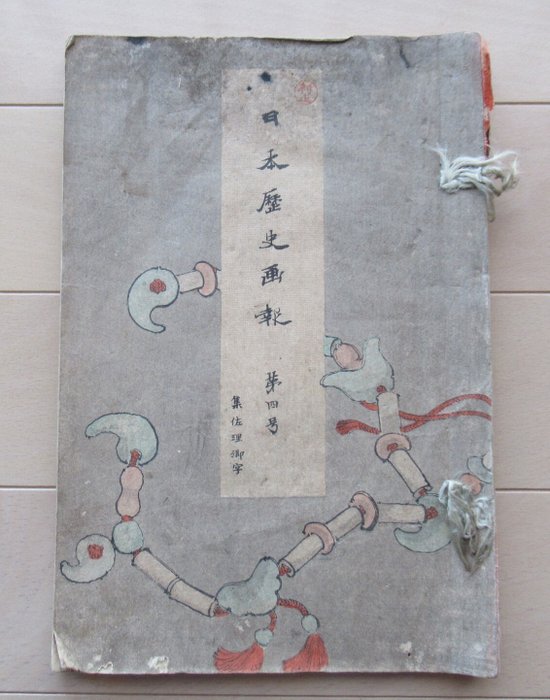 日本歷史画報 第四号
集佐理卿字